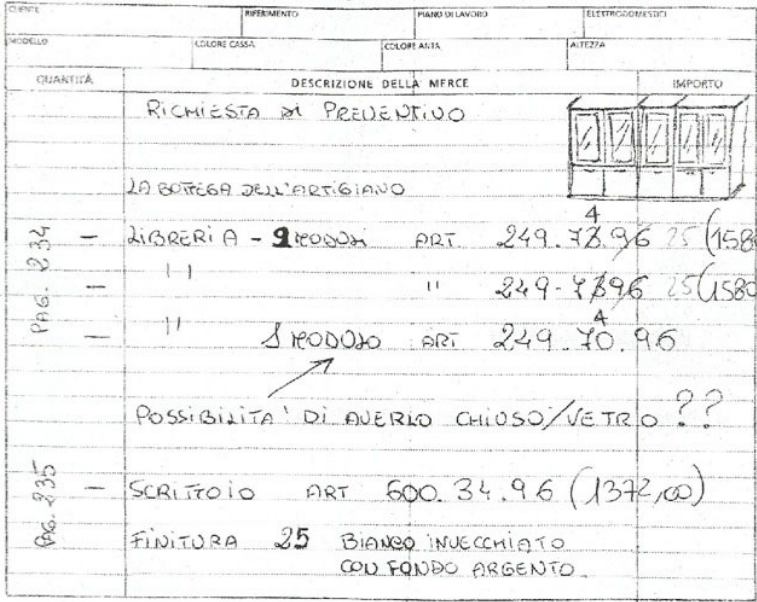 CLIENTE RIFERIMENTO PIANO DI LAVORO ELETTRODOMESTICI
MODELLO COLORE CASSA COLORE ANTA ALTEZZA
QUANTITÀ DESCRIZIONE DELLA MERCE IMPORTO
RICHIESTA DI PREVENTIVO
LA BOTTEGA DELL'ARTIGIANO
PAG. 234
- LIBRERIA - MODULI ART 249. 4 96 25 (1580
- " " 249- 96 25 (1580
- " 1 MODULO ART 249. 70. 96
4
POSSIBILITA' DI AVERLO CHIUSO/VETRO ??
PAG. 235
- SCRITTOIO ART 600. 34. 96 (1372,00)
FINITURA 25 BIANCO INVECCHIATO
CON FONDO ARGENTO.